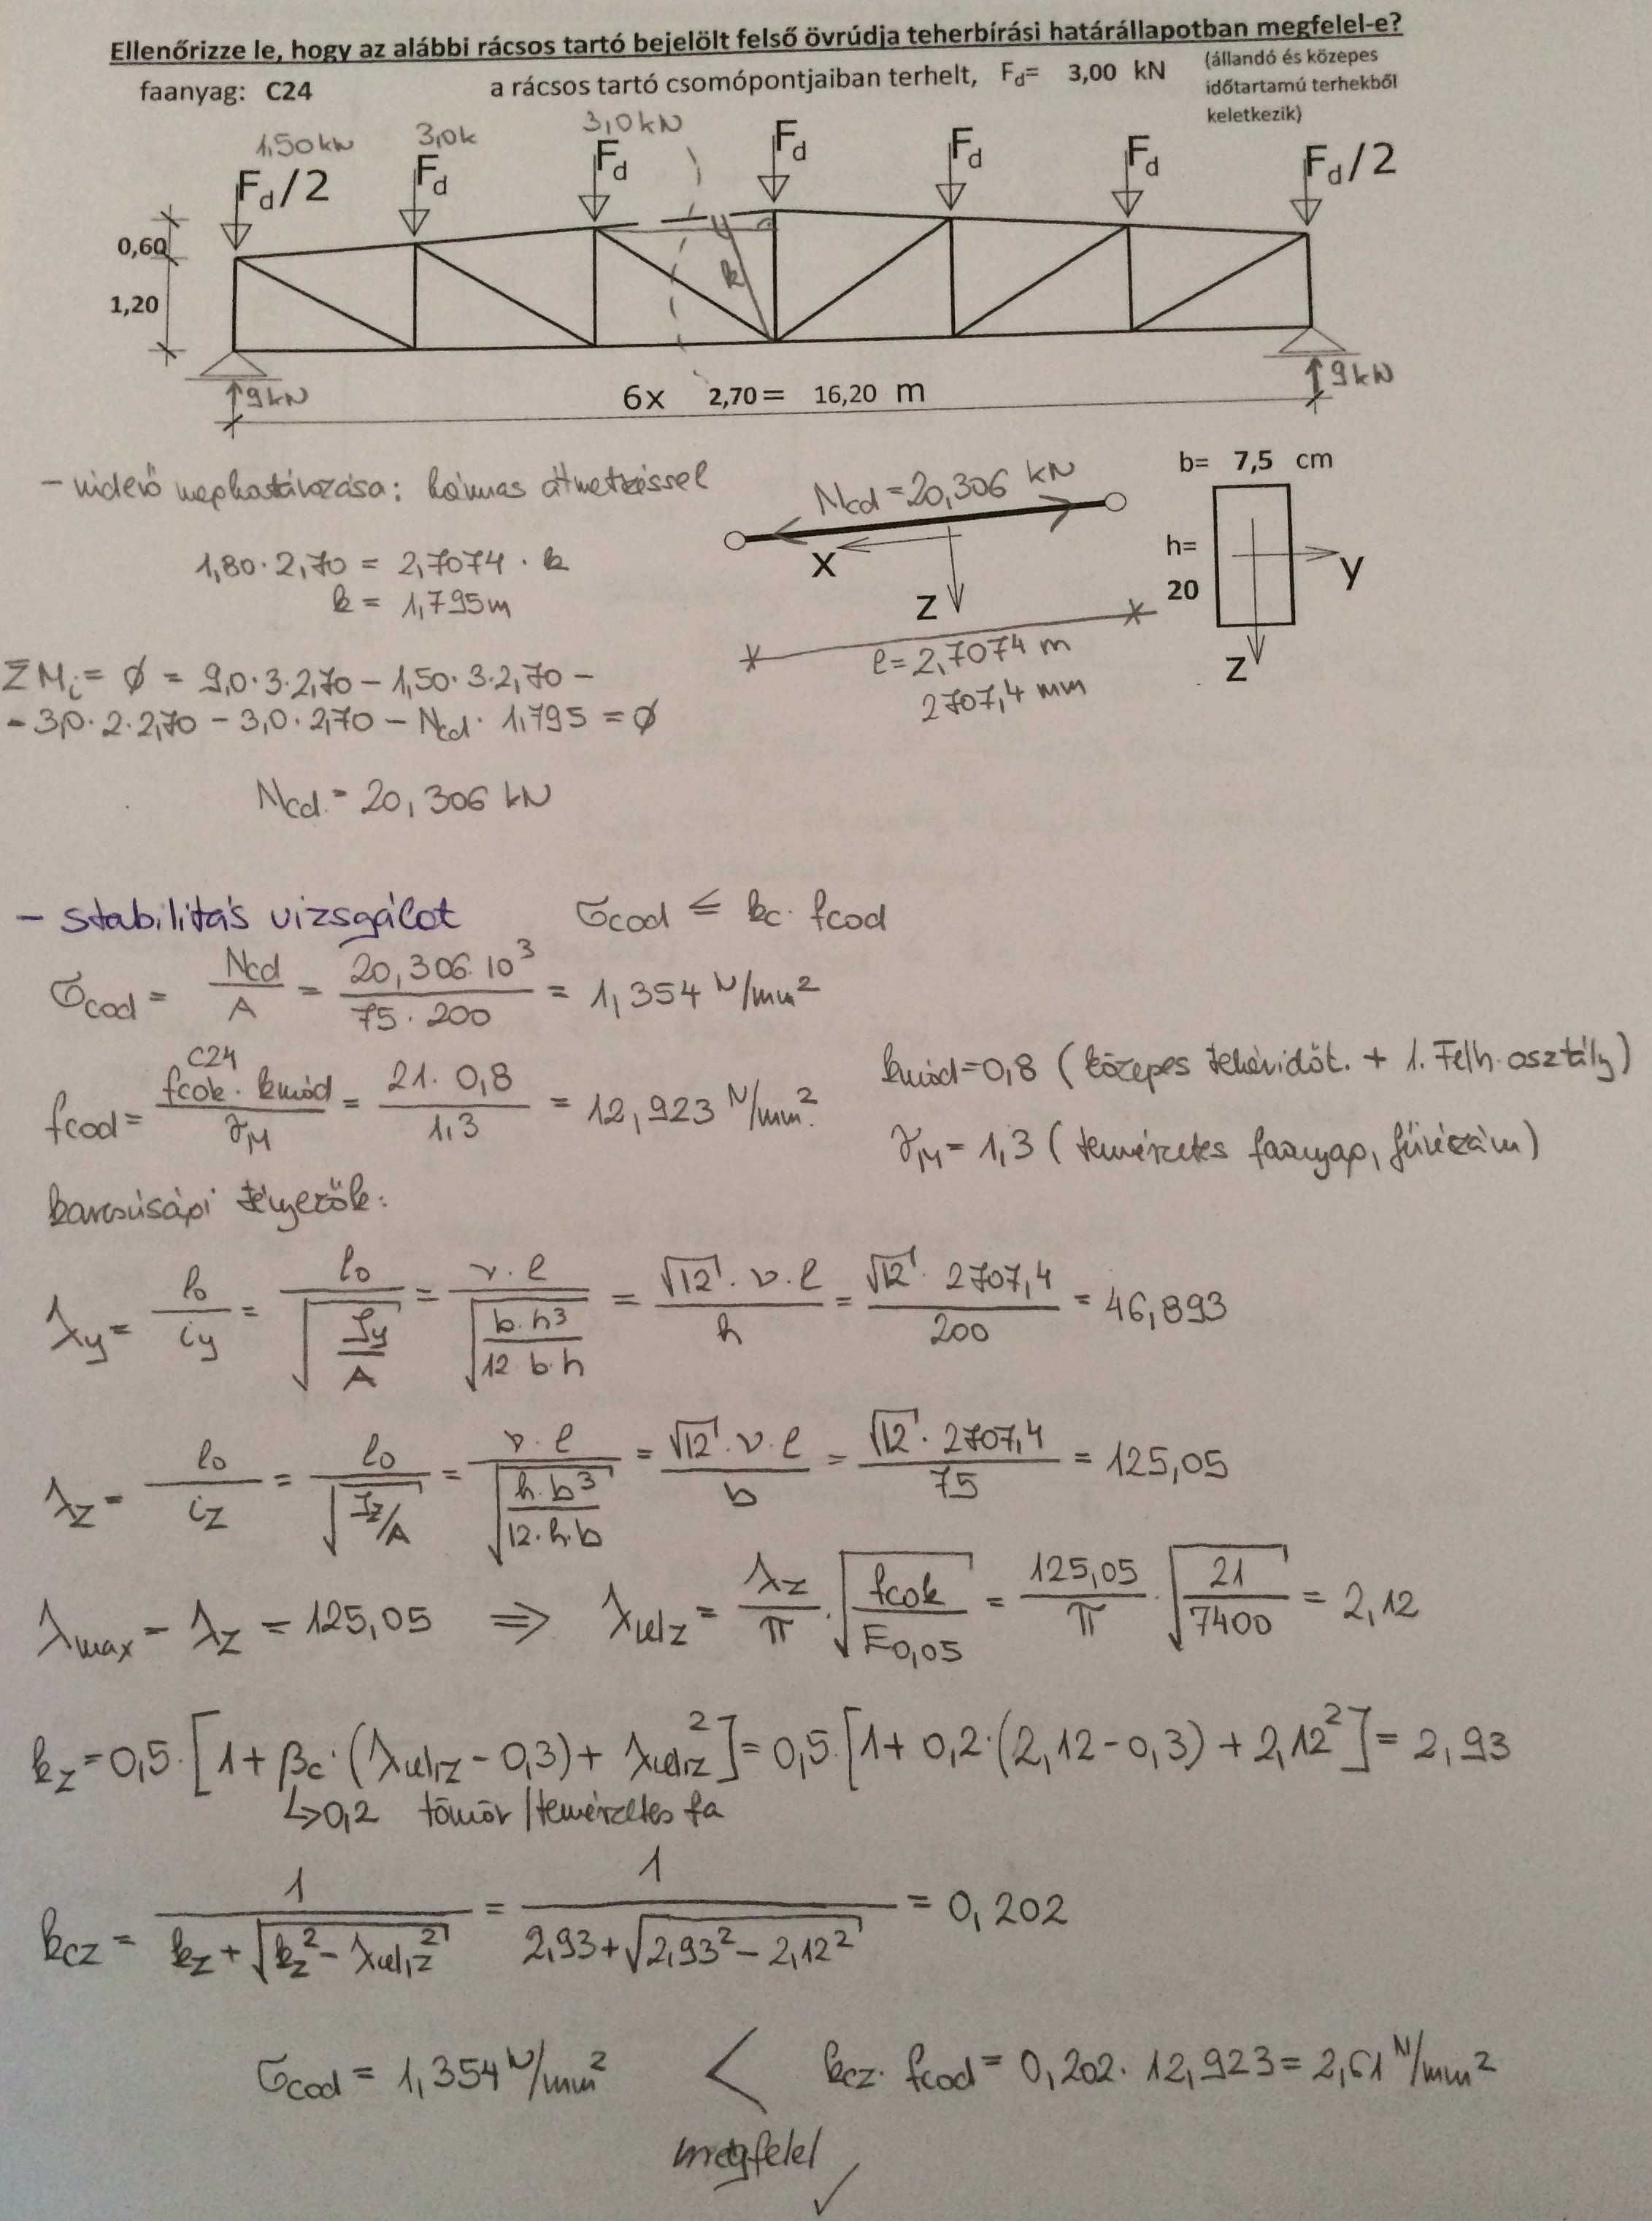 Ellenőrizze le, hogy az alábbi rácsos tartó bejelölt felső övrúdja teherbírási határállapotban megfelel-e?
faanyag: C24 a rácsos tartó csomópontjaiban terhelt, Fd= 3,00 kN (állandó és közepes időtartamú terhekből keletkezik)
1,50kN 3,0k 3,0kN
Fd/2 Fd Fd Fd Fd Fd Fd/2
0,60
k
1,20
9kN 9kN
6x 2,70= 16,20 m
- rúderő meghatározása: hármas átmetszéssel
1,80·2,70 = 2,7074 · k
k = 1,795m
ΣMi = ø = 9,0·3·2,70 - 1,50·3·2,70 -
- 3,0·2·2,70 - 3,0·2,70 - Ncd · 1,795 = ø
Ncd = 20,306 kN
Ncd = 20,306 kN
x
z
l = 2,7074 m
2707,4 mm
b= 7,5 cm
h=
20
y
z
- stabilitás vizsgálat σcod ≤ kc · fcod
σcod = Ncd/A = 20,306·10³/(75·200) = 1,354 N/mm²
C24
fcod = fcok · kmód/γM = 21 · 0,8/1,3 = 12,923 N/mm².
kmód=0,8 (közepes teheridőt. + 1. Felh. osztály)
γM = 1,3 (természetes faanyag, fűrészáru)
karcsúsági tényezők:
λy = l0/iy = l0/√(Iy/A) = ν·l/√(b·h³/12·b·h) = √12 · ν·l/h = √12 · 2707,4/200 = 46,893
λz = l0/iz = l0/√(Iz/A) = ν·l/√(h·b³/12·h·b) = √12 · ν·l/b = √12 · 2707,4/75 = 125,05
λmax = λz = 125,05 ⇒ λrelz = λz/π · √(fcok/E0,05) = 125,05/π · √(21/7400) = 2,12
kz = 0,5·[1 + βc·(λrel,z - 0,3) + λrel,z²] = 0,5·[1 + 0,2·(2,12-0,3) + 2,12²] = 2,93
↳0,2 tömör/természetes fa
kcz = 1/(kz + √(kz² - λrel,z²)) = 1/(2,93 + √(2,93² - 2,12²)) = 0,202
σcod = 1,354 N/mm² < kcz · fcod = 0,202 · 12,923 = 2,61 N/mm²
megfelel ✓